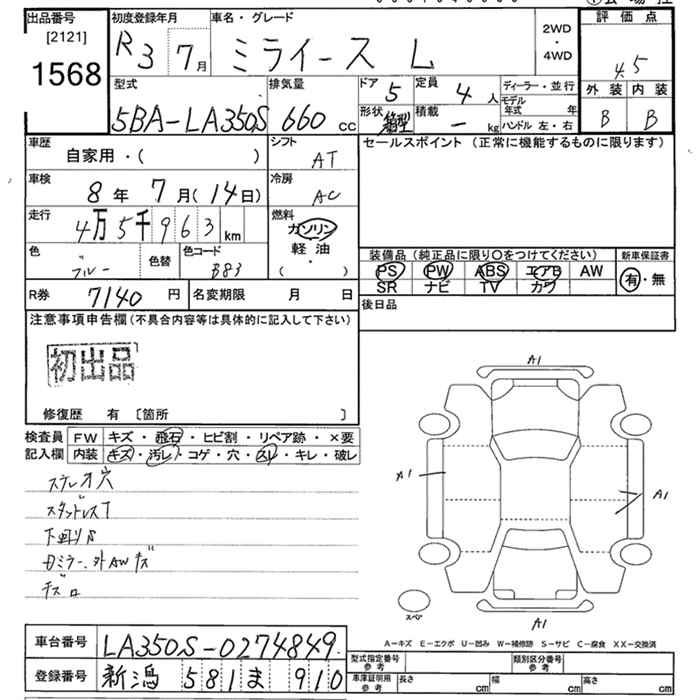 出品番号
[2121]
1568
初度登録年月
R3 7月
車名・グレード
ミライース L
2WD
・
4WD
評価点
4.5
外装 内装
B B
型式
5BA-LA350S
排気量
660 cc
ドア
5
定員
4 人
形状
箱型
積載
- kg
ディーラー・並行
モデル年式 年
ハンドル 左・右
車歴
自家用・( )
シフト
AT
車検
8年 7月(14日)
冷房
AC
走行
4万5千963 km
燃料
ガソリン
軽油
( ・ )
色
ブルー
色替
色コード
B83
R券
7140 円
名変期限 月 日
セールスポイント (正常に機能するものに限ります)
装備品(純正品に限り〇をつけてください)
新車保証書
PS PW ABS エアB AW
有・無
SR ナビ TV カワ
後日品
注意事項申告欄(不具合内容等は具体的に記入して下さい)
初出品
修復歴 有 〔箇所 〕
検査員
記入欄
FW キズ・飛石・ヒビ割・リペア跡・×要
内装 キズ・汚レ・コゲ・穴・スレ・キレ・破レ
ステレオ穴
スタッドレスT
下廻りS
ミラー、外AWキズ
A1
A1
A1
A1
スペア
A-キズ E-エクボ U-凹み W-補修跡 S-サビ C-腐食 XX-交換済
車台番号
LA350S-0274849
登録番号
新潟 581 ま 910
型式指定番号
参考
類別区分番号
参考
車庫証明用
参考
長さ cm
幅 cm
高さ cm